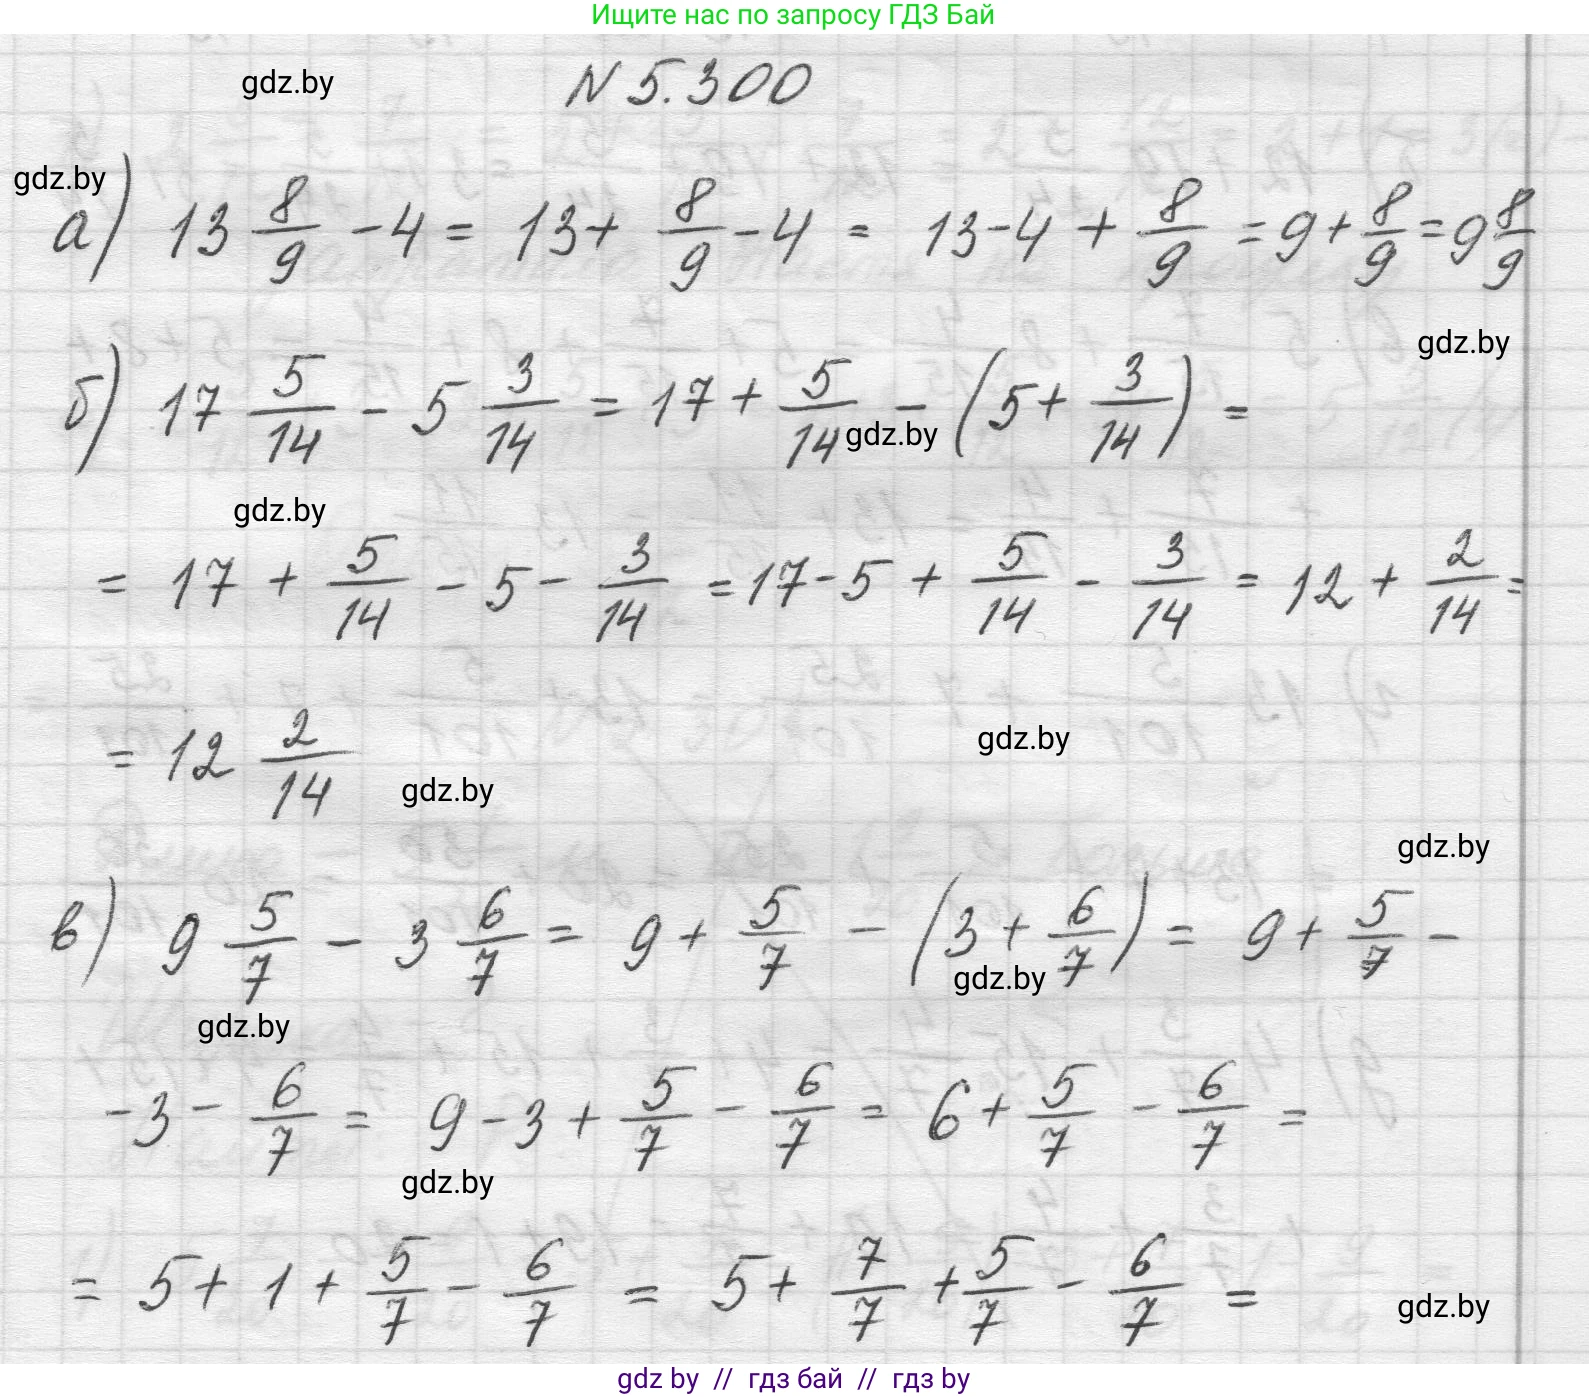 Ищите нас по запросу ГДЗ Бай
gdz.by
N 5.300
gdz.by
а) 13 8/9 - 4 = 13 + 8/9 - 4 = 13 - 4 + 8/9 = 9 + 8/9 = 9 8/9
gdz.by
б) 17 5/14 - 5 3/14 = 17 + 5/14 - (5 + 3/14) =
gdz.by
gdz.by
= 17 + 5/14 - 5 - 3/14 = 17 - 5 + 5/14 - 3/14 = 12 + 2/14 =
gdz.by
= 12 2/14
gdz.by
gdz.by
в) 9 5/7 - 3 6/7 = 9 + 5/7 - (3 + 6/7) = 9 + 5/7 -
gdz.by
gdz.by
- 3 - 6/7 = 9 - 3 + 5/7 - 6/7 = 6 + 5/7 - 6/7 =
gdz.by
= 5 + 1 + 5/7 - 6/7 = 5 + 7/7 + 5/7 - 6/7 =
gdz.by
gdz by // гдз бай // гдз by